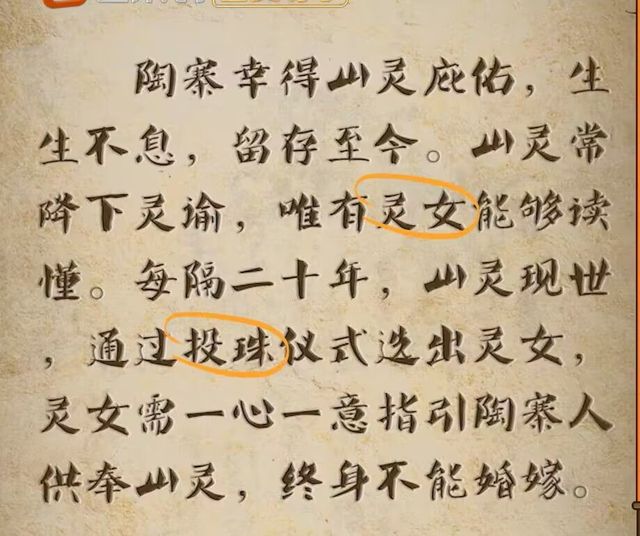 陶寨幸得山灵庇佑，生
生不息，留存至今。山灵常
降下灵谕，唯有灵女能够读
懂。每隔二十年，山灵现世
，通过投珠仪式选出灵女，
灵女需一心一意指引陶寨人
供奉山灵，终身不能婚嫁。